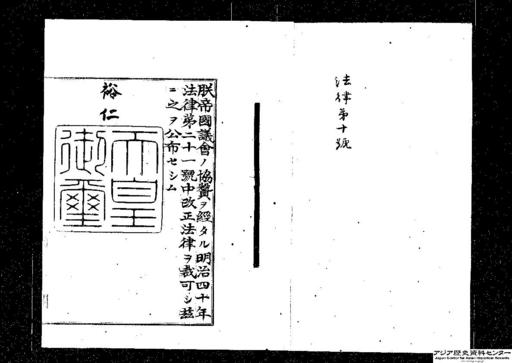 法律第十號
朕帝國議會ノ協贊ヲ經タル明治四十年
法律第二十一號中改正法律ヲ裁可シ茲
ニ之ヲ公布セシム
裕仁
天皇
御璽
アジア歴史資料センター
Japan Center for Asian Historical Records